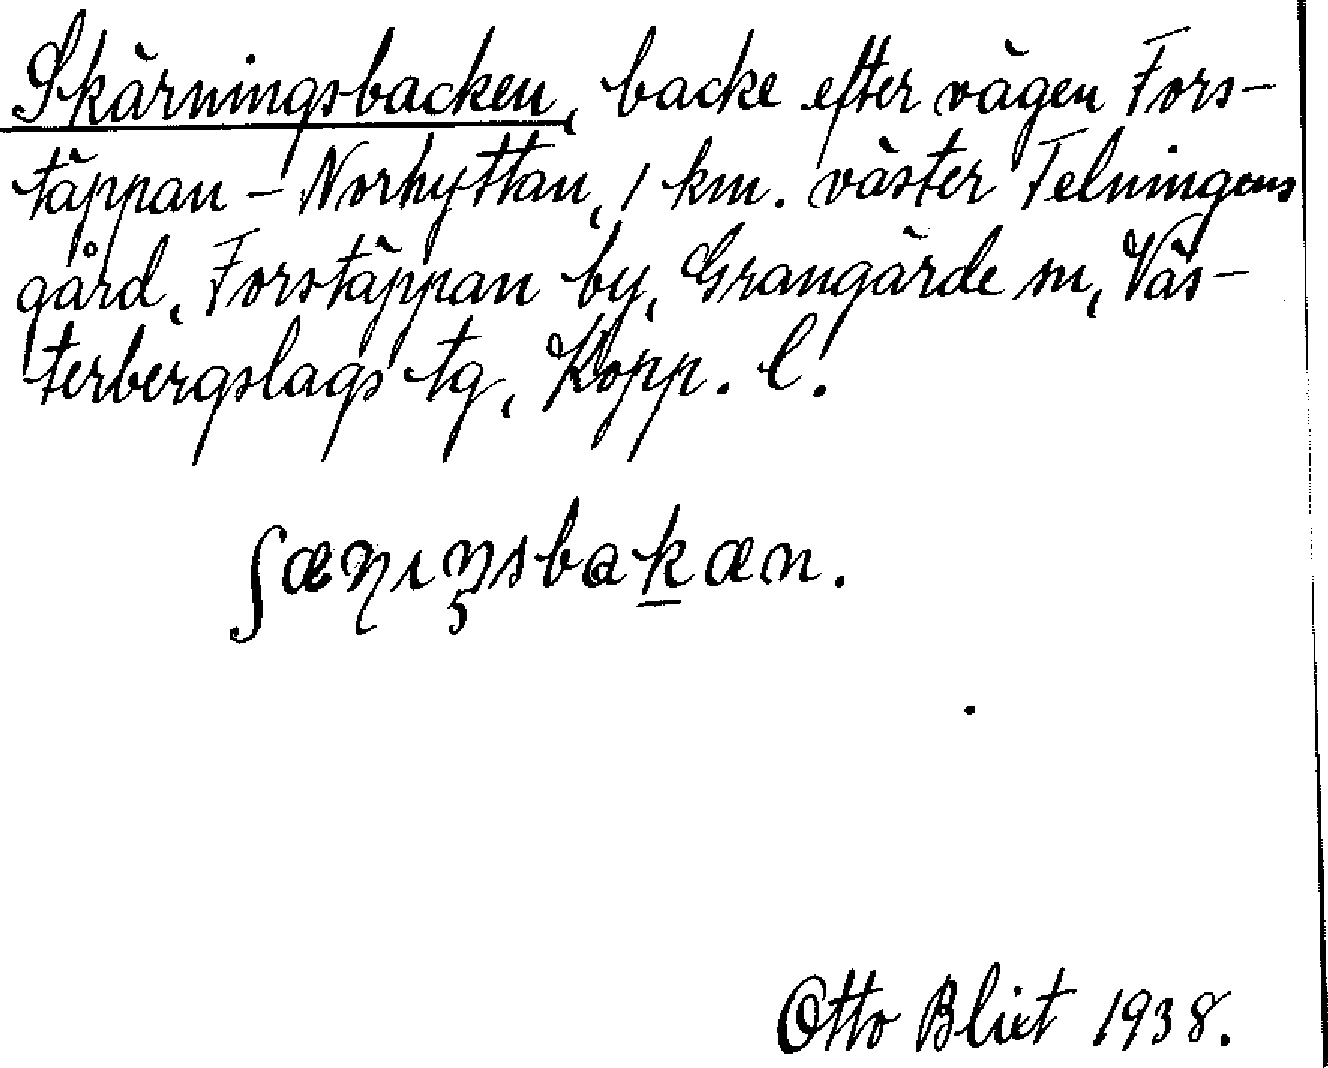 Skärningsbacken, backe efter vägen Fors-
täppan - Norhyttan, 1 km. väster Felningens
gård, Forstäppan by, Grangärde sn, Väs-
terbergslags tg, Kopp. l.
ʃæɳıŋsbakæn.
Otto Blixt 1938.